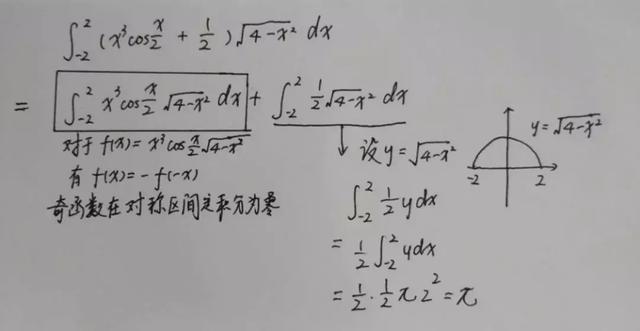 ∫_{-2}^{2} (x³cos x/2 + 1/2) √(4-x²) dx
= ∫_{-2}^{2} x³cos x/2 √(4-x²) dx + ∫_{-2}^{2} 1/2 √(4-x²) dx
对于 f(x) = x³cos x/2 √(4-x²)
有 f(x) = -f(-x)
奇函数在对称区间定积分为零
设 y = √(4-x²)
∫_{-2}^{2} 1/2 y dx
= 1/2 ∫_{-2}^{2} y dx
= 1/2 · 1/2 π 2² = π
y = √(4-x²)
-2 2